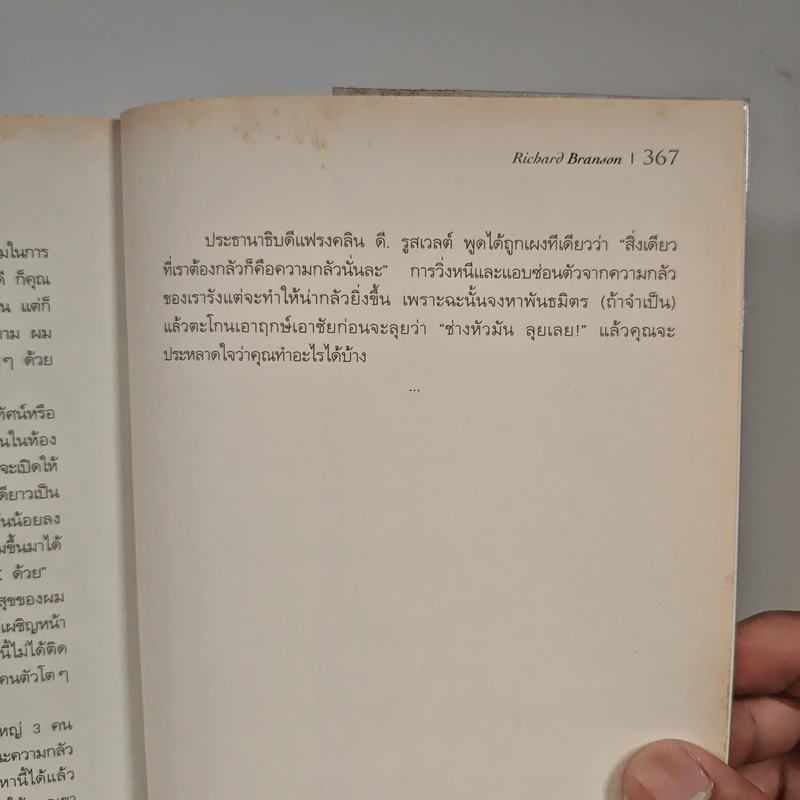 มในการ
ดี ก็คุณ
น แต่ก็
ตาม ผม
ๆ ด้วย
ทัศน์หรือ
นในห้อง
จะเปิดให้
ดียวเป็น
ันน้อยลง
มขึ้นมาได้
ด้วย"
สุขของผม
เผชิญหน้า
นี้ไม่ได้ติด
คนตัวโตๆ
หญ่ 3 คน
ณะความกลัว
หานี้ได้แล้ว
Richard Branson | 367
ประธานาธิบดีแฟรงคลิน ดี. รูสเวลต์ พูดได้ถูกเผงทีเดียวว่า "สิ่งเดียว
ที่เราต้องกลัวก็คือความกลัวนั่นละ" การวิ่งหนีและแอบซ่อนตัวจากความกลัว
ของเรารังแต่จะทำให้น่ากลัวยิ่งขึ้น เพราะฉะนั้นจงหาพันธมิตร (ถ้าจำเป็น)
แล้วตะโกนเอาฤกษ์เอาชัยก่อนจะลุยว่า "ช่างหัวมัน ลุยเลย!" แล้วคุณจะ
ประหลาดใจว่าคุณทำอะไรได้บ้าง
...